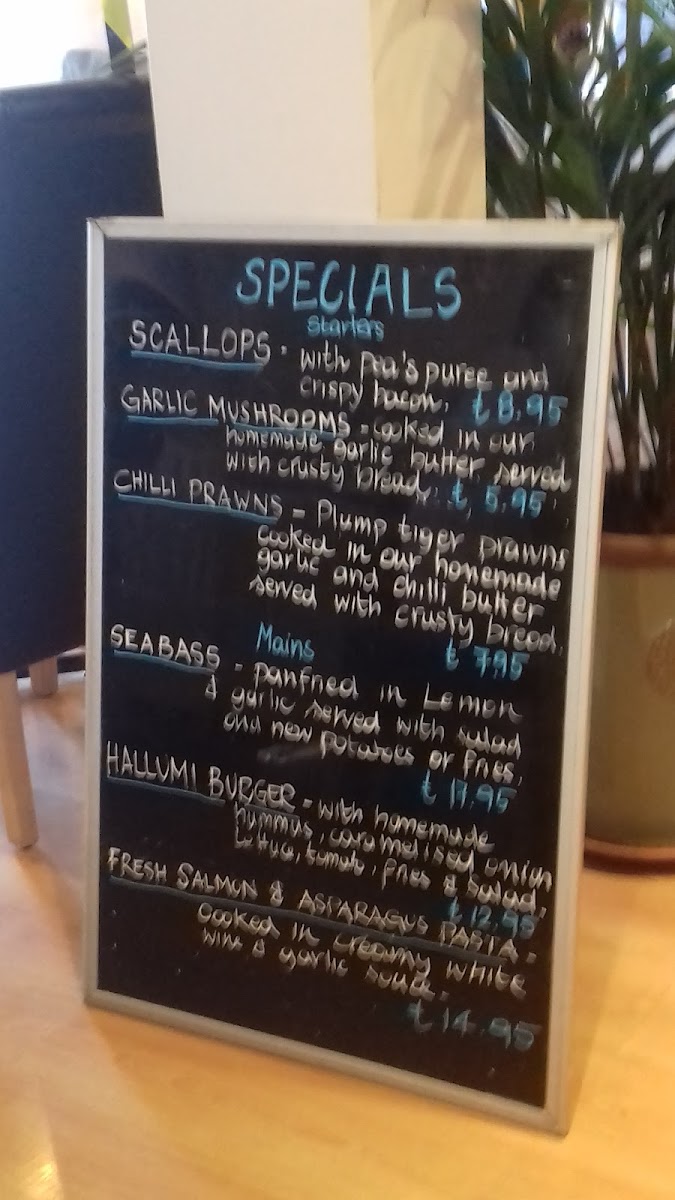 SPECIALS
Starters
SCALLOPS - with pea's puree and
crispy bacon. £8.95
GARLIC MUSHROOMS - cooked in our
homemade garlic butter served
with crusty bread. £5.95
CHILLI PRAWNS - Plump tiger prawns
cooked in our homemade
garlic and chilli butter
served with crusty bread.
£7.95
Mains
SEABASS - panfried in Lemon
& garlic served with salad
and new potatoes or fries.
£17.95
HALLUMI BURGER - with homemade
hummus, caramelised onion
lettuce, tomato, fries & salad.
£12.95
FRESH SALMON & ASPARAGUS PASTA -
cooked in creamy white
wine & garlic sauce.
£14.95